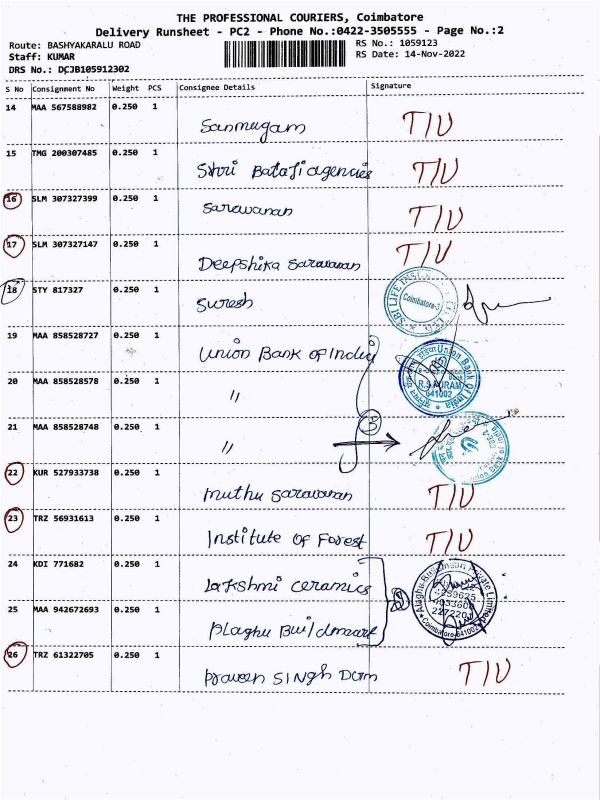 THE PROFESSIONAL COURIERS, Coimbatore
Delivery Runsheet - PC2 - Phone No.:0422-3505555 - Page No.:2
Route: BASHYAKARALU ROAD RS No.: 1059123
Staff: KUMAR RS Date: 14-Nov-2022
DRS No.: DCJB105912302
S No Consignment No Weight PCS Consignee Details Signature
14 MAA 567588982 0.250 1
Sanmugam T/U
15 TMG 200307485 0.250 1
Shri Balaji agencies T/U
16 SLM 307327399 0.250 1
Saravanan T/U
17 SLM 307327147 0.250 1
Deepshika Saravanan T/U
18 STY 817327 0.250 1
Suresh Coimbatore-3
19 MAA 858528727 0.250 1
Union Bank of India
20 MAA 858528578 0.250 1
" R.S.PURAM
641002
21 MAA 858528748 0.250 1
" 3
22 KUR 527933738 0.250 1
Muthu Saravanan T/U
23 TRZ 56931613 0.250 1
Institute of Forest T/U
24 KDI 771682 0.250 1
Lakshmi Ceramics
25 MAA 942672693 0.250 1
Alaghu Buildmark
26 TRZ 61322705 0.250 1
Praveen Singh T/U